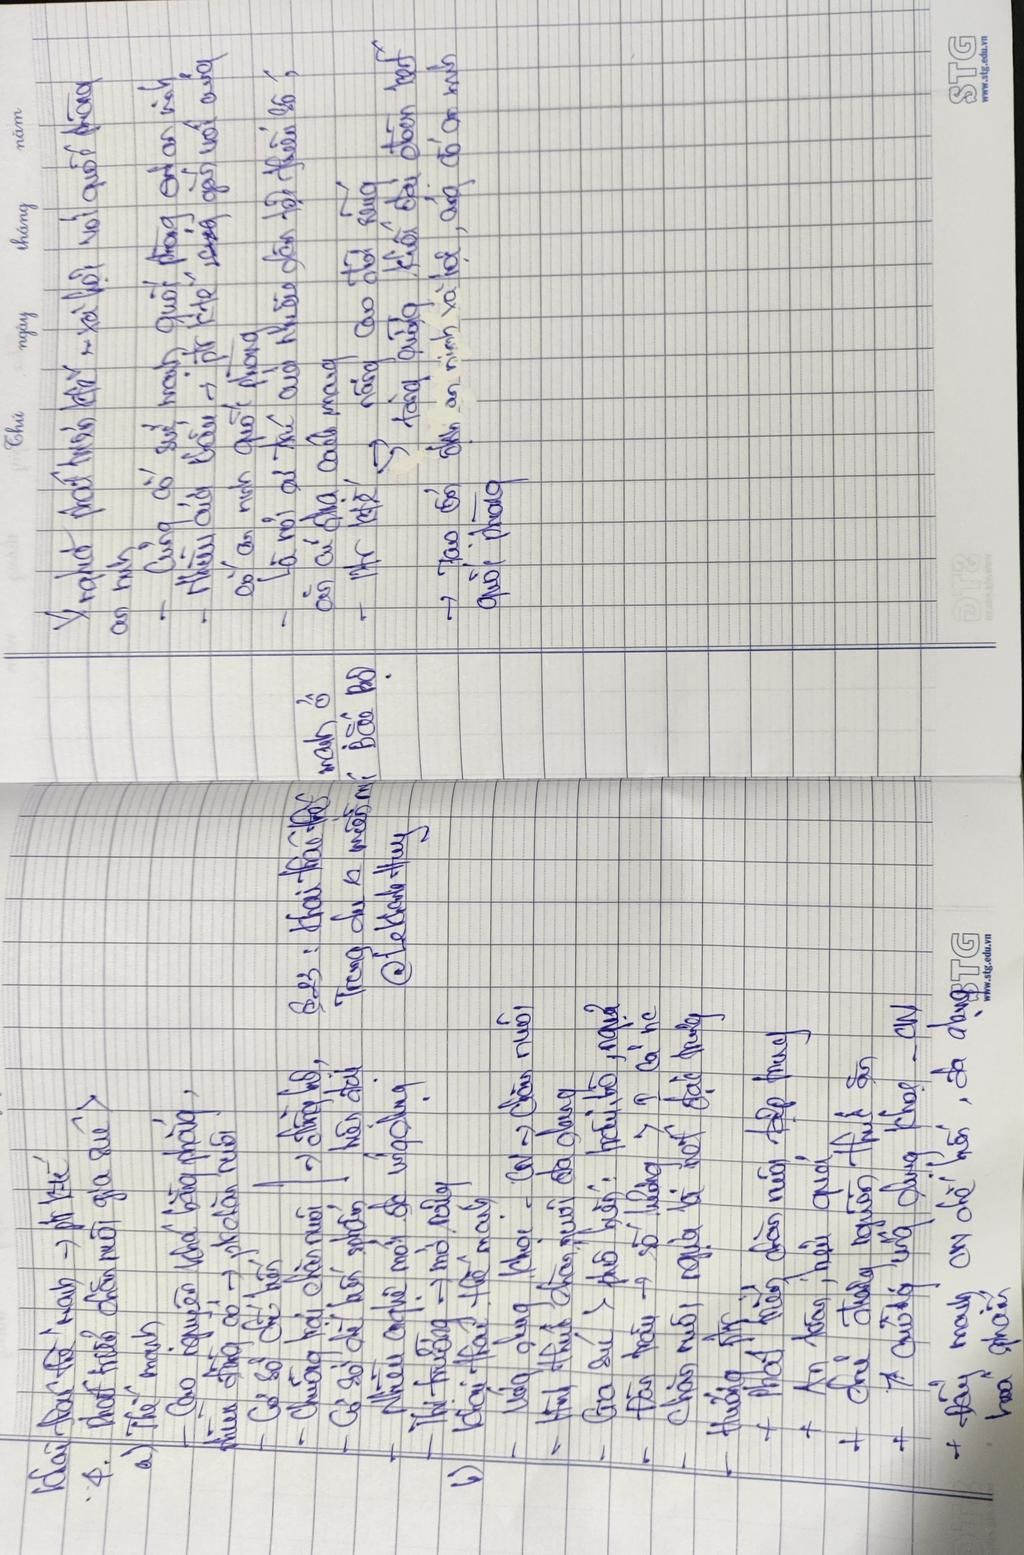 Khai thác thế mạnh → ptr ktế
4. Phát triển chăn nuôi gia súc >
a) Thế mạnh
- Cao nguyên khá bằng phẳng,
nhiều đồng cỏ → pt chăn nuôi
- Cơ sở chế biến
- Chuồng trại chăn nuôi → đồng bộ,
- Cơ sở chế biến sphẩm hiện đại
- Nhiều công nghệ mới đc ứg dụng
- Thị trường → mở rộng
b) Khai thác thế mạnh
- Ứng dụng khoa - CN → chăn nuôi
- Hình thức chăn nuôi đa dạng
- Gia súc > phổ biến: trâu, bò, ngựa
- Đàn trâu → số lượng > ? cả nc
- Chăn nuôi ngựa là nét đặc trưng
- Hướng ptr
+ Phát triển chăn nuôi tập trung
+ An toàn, hiệu quả
+ Chủ động nguồn thức ăn
+ ↗ cường ứng dụng khoa - CN
+ Đẩy mạnh CN chế biến, đa dạng
hoá phẩm
B.23: Khai thác thế mạnh ở
Trung du & miền núi Bắc Bộ.
@LeKhanhHuy
STG
www.stg.edu.vn
Thứ ngày tháng năm
Ý nghĩa phát triển ktế ~ xã hội với quốc phòng
an ninh
- Củng cố sức mạnh quốc phòng an ninh
- Nhiều cửa khẩu → ptr ktế gắn với củng
cố an ninh quốc phòng
- Là nơi cư trú của nhiều dân tộc thiểu số,
căn cứ địa cách mạng
- Ptr ktế → nâng cao đời sống
→ tăng cường khối đại đoàn kết
→ Tạo ổn định an ninh xã hội, củng cố an ninh
quốc phòng
STG
www.stg.edu.vn